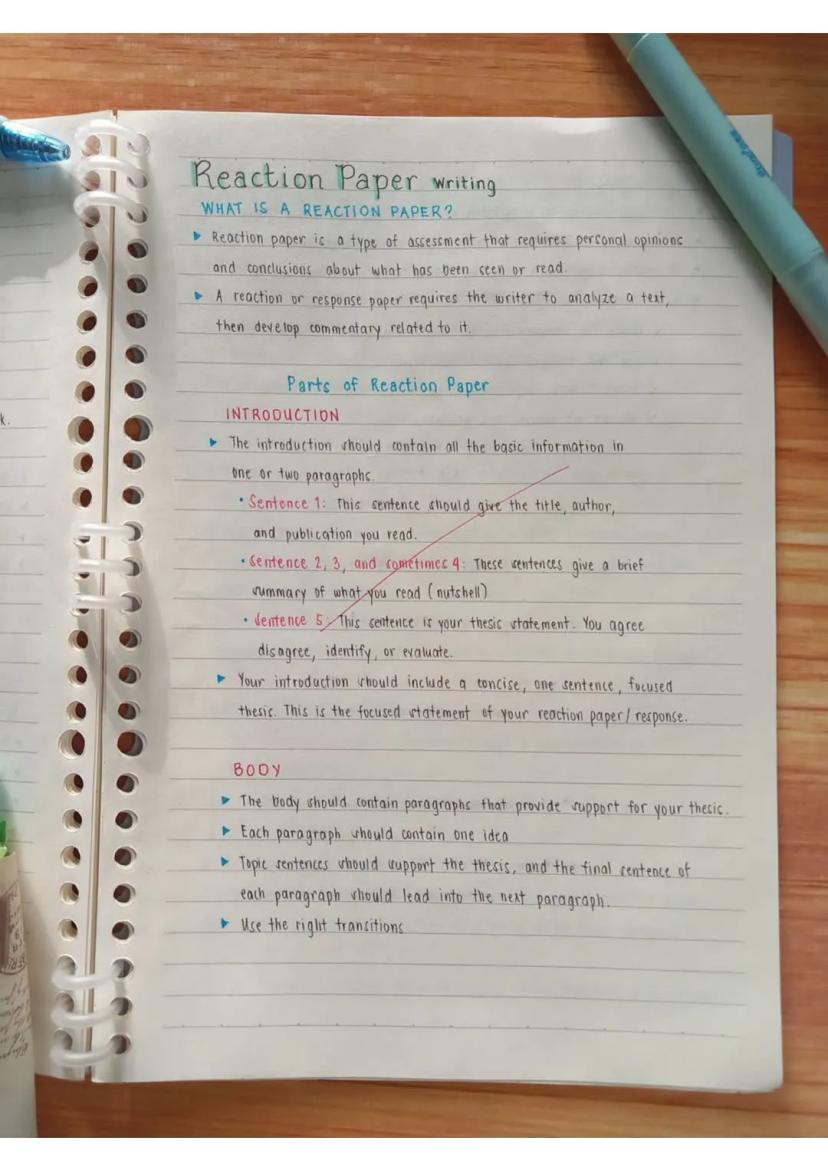 Reaction Paper Writing
WHAT IS A REACTION PAPER?
Reaction paper is a type of assessment that requires personal opinions
and conclusions about what has been seen or read.
A reaction or response paper requires the writer to analyze a text,
then develop commentary related to it.
Parts of Reaction Paper
INTRODUCTION
k.
The introduction should contain all the basic information in
one or two paragraphs.
• Sentence 1: This sentence should give the title, author,
and publication you read.
• Sentence 2, 3, and sometimes 4: These sentences give a brief
summary of what you read (nutshell)
• Sentence 5: This sentence is your thesis statement. You agree
disagree, identify, or evaluate.
Your introduction should include a concise, one sentence, focused
thesis. This is the focused statement of your reaction paper/response.
BODY
The body should contain paragraphs that provide support for your thesis.
Each paragraph should contain one idea
Topic sentences should support the thesis, and the final sentence of
each paragraph should lead into the next paragraph.
Use the right transitions